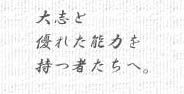 大志と
優れた能力を
持つ者たちへ。